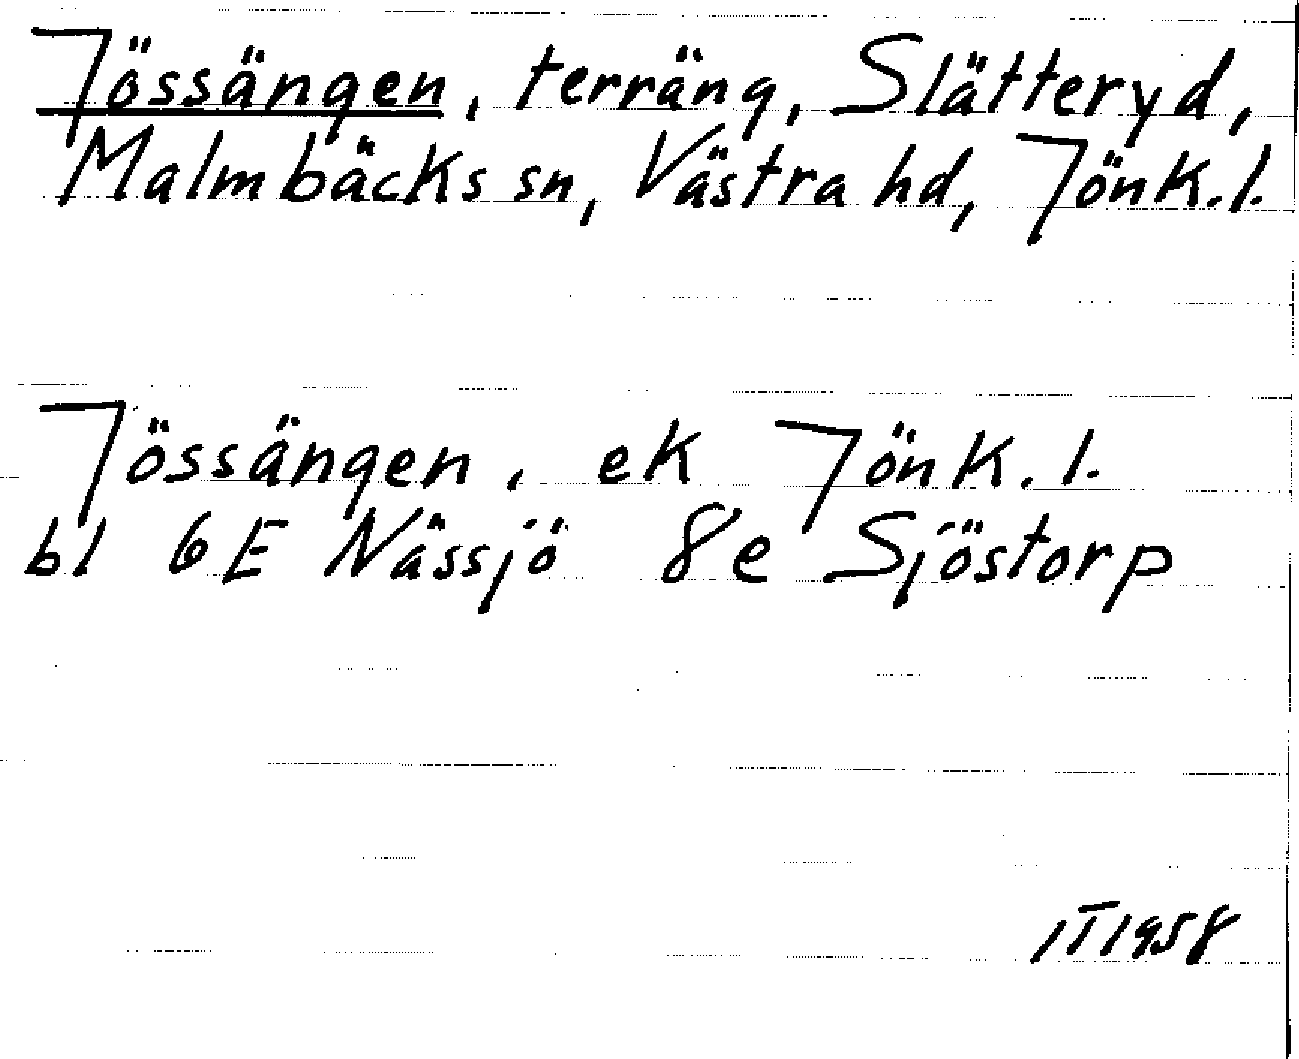 Jössängen, terräng, Slätteryd,
Malmbäcks sn, Västra hd, Jönk.l.
Jössängen, ek Jönk.l.
bl 6E Nässjö 8e Sjöstorp
1958